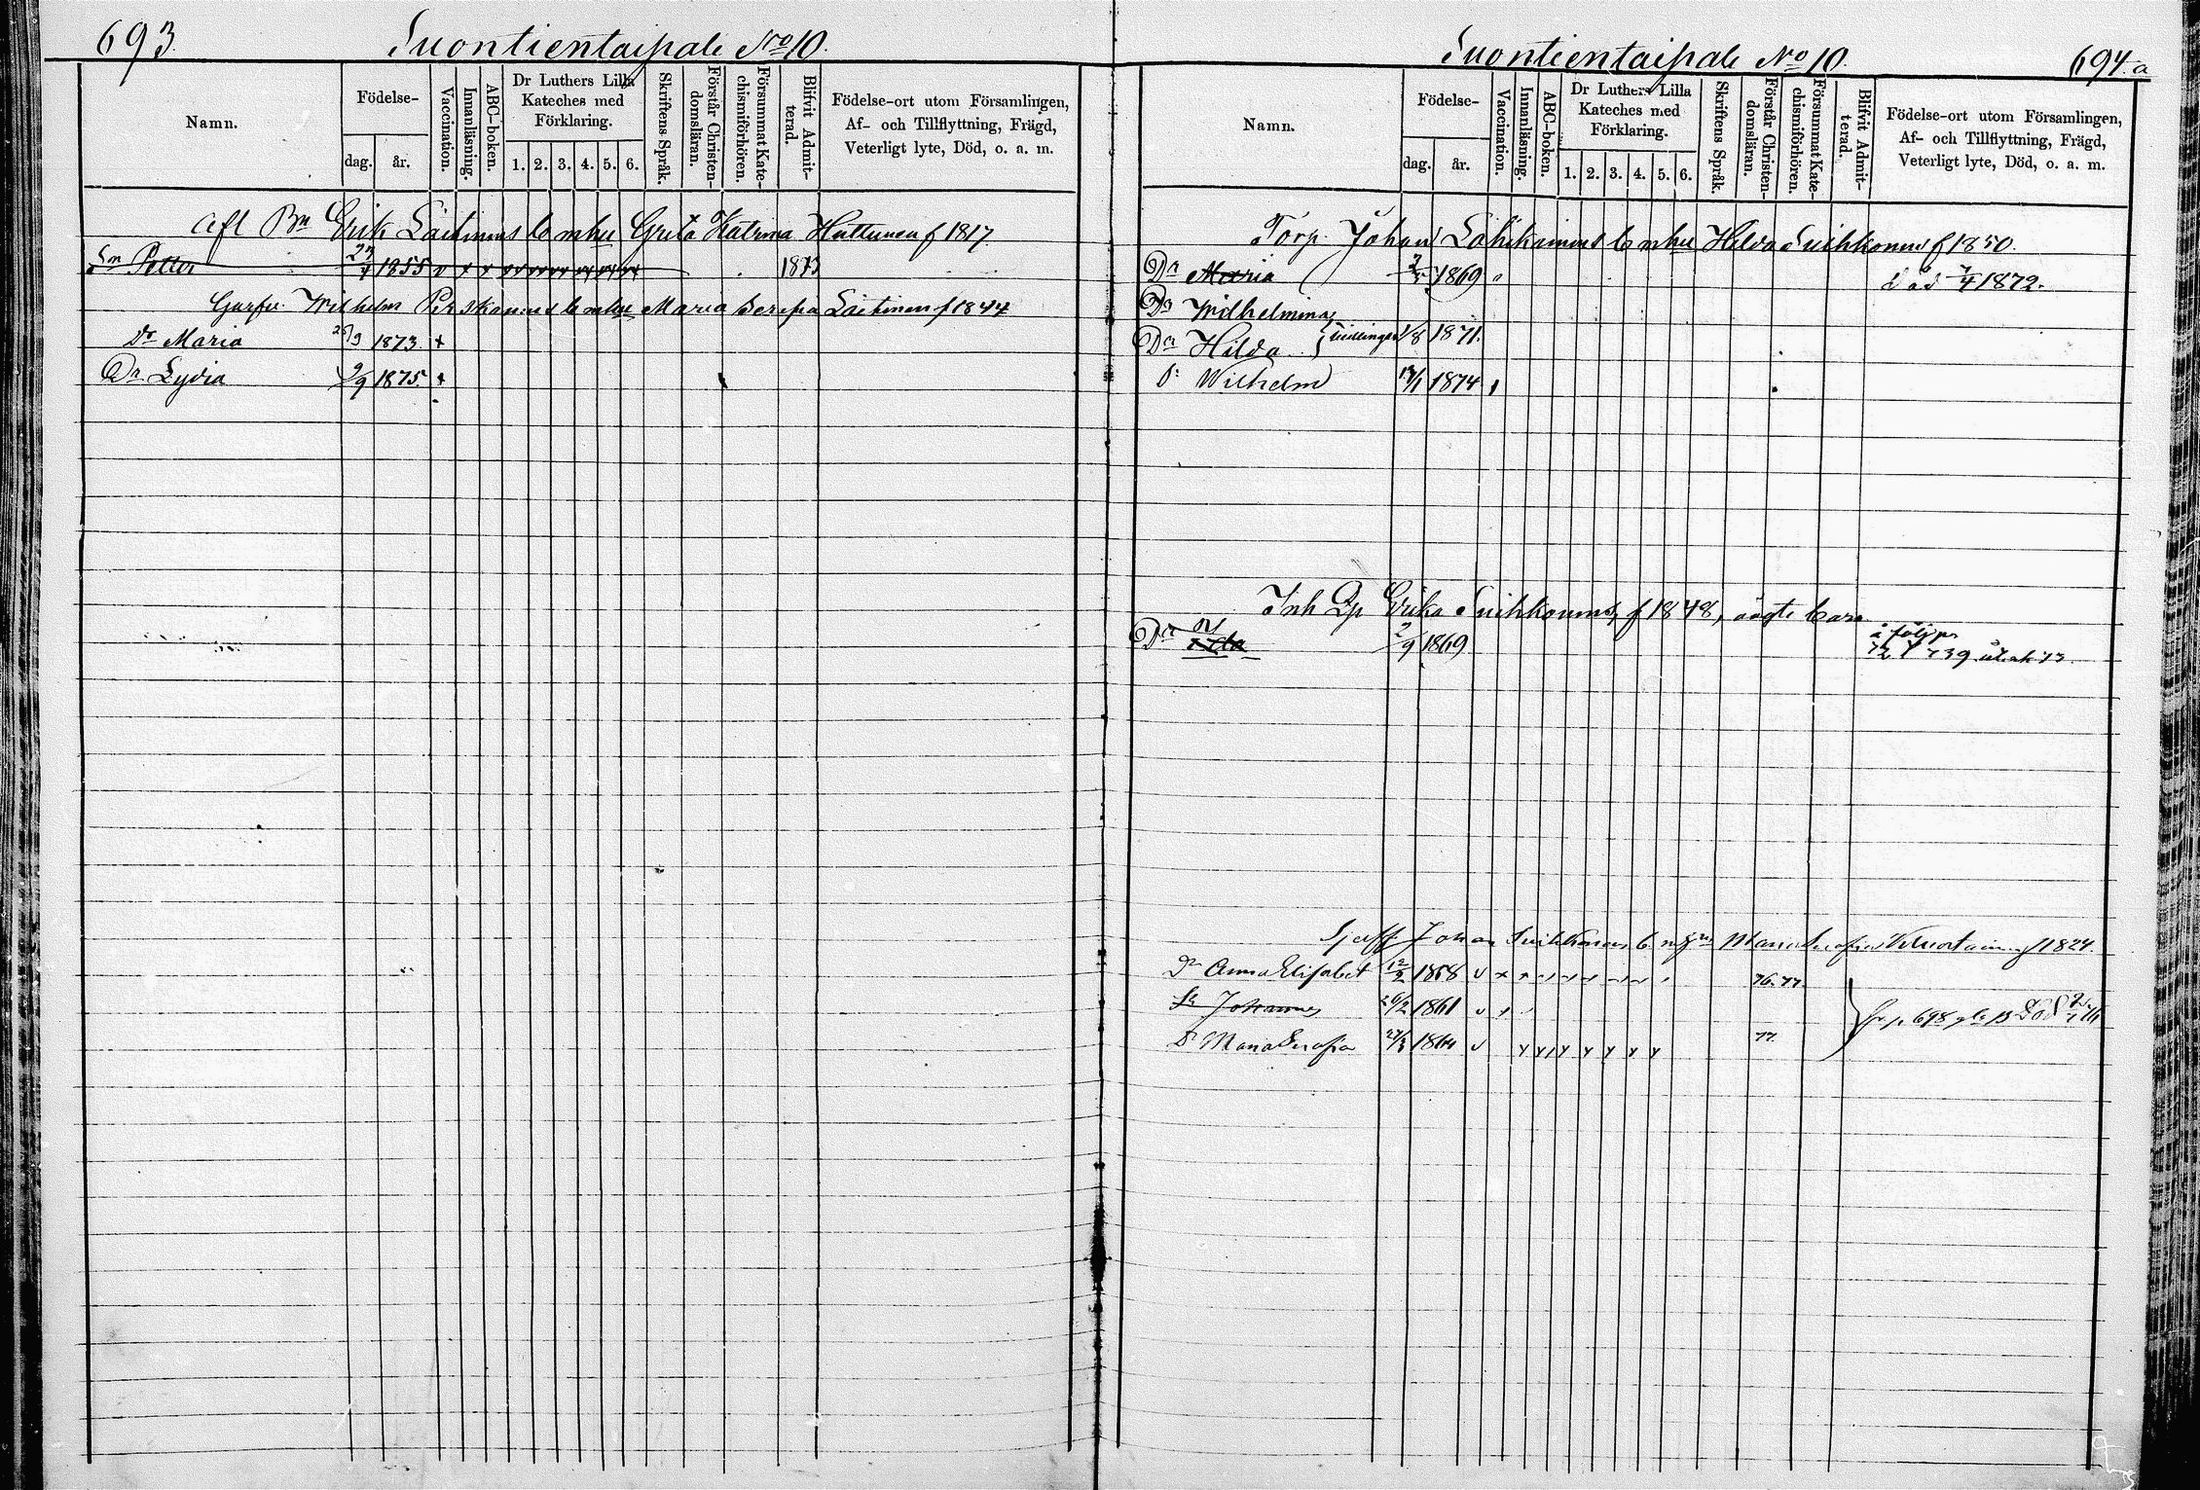 693.
Suontientaipale No 10.
Namn.
Födelse-
dag.
år.
Vaccination.
Innanläsning.
ABC-boken.
Dr Luthers Lilla
Kateches med
Förklaring.
1. 2. 3. 4. 5. 6.
Skriftens Språk.
Förstår Christen-
domsläran.
Försummat Kate-
chismiförhören.
Blifvit Admit-
terad.
Födelse-ort utom Församlingen,
Af- och Tillflyttning, Frägd,
Veterligt lyte, Död, o. a. m.
Afl Bn Erik Laitinens b m hu Greta Katrina Huttunen f 1817
Sn Petter 1855 1873
Wilhelm b m hu Maria Serefia Laitinen f 1844
Dr Maria 1873
Dr Lydia 9/9 1875
Suontientaipale No 10.
694.a
Namn.
Födelse-
dag.
år.
Vaccination.
Innanläsning.
ABC-boken.
Dr Luthers Lilla
Kateches med
Förklaring.
1. 2. 3. 4. 5. 6.
Skriftens Språk.
Förstår Christen-
domsläran.
Försummat Kate-
chismiförhören.
Blifvit Admit-
terad.
Födelse-ort utom Församlingen,
Af- och Tillflyttning, Frägd,
Veterligt lyte, Död, o. a. m.
Torp. Johan b m hu Hilda Suihkonens f 1850.
Dr Maria 1869 död 7/4 1872.
Dr Wilhelmina
Dr Hilda tvillingar 1/8 1871.
Wilhelm 1874
Inh Erika Suihkonens, f 1848, oägte barn
Dr 2/9 1869
Johan Suihkonens b m Maria f 1824.
Dr Anna Elisabet 12/2 1858 76. 77
Johannes 1861
Maria Serafia 1864 77.